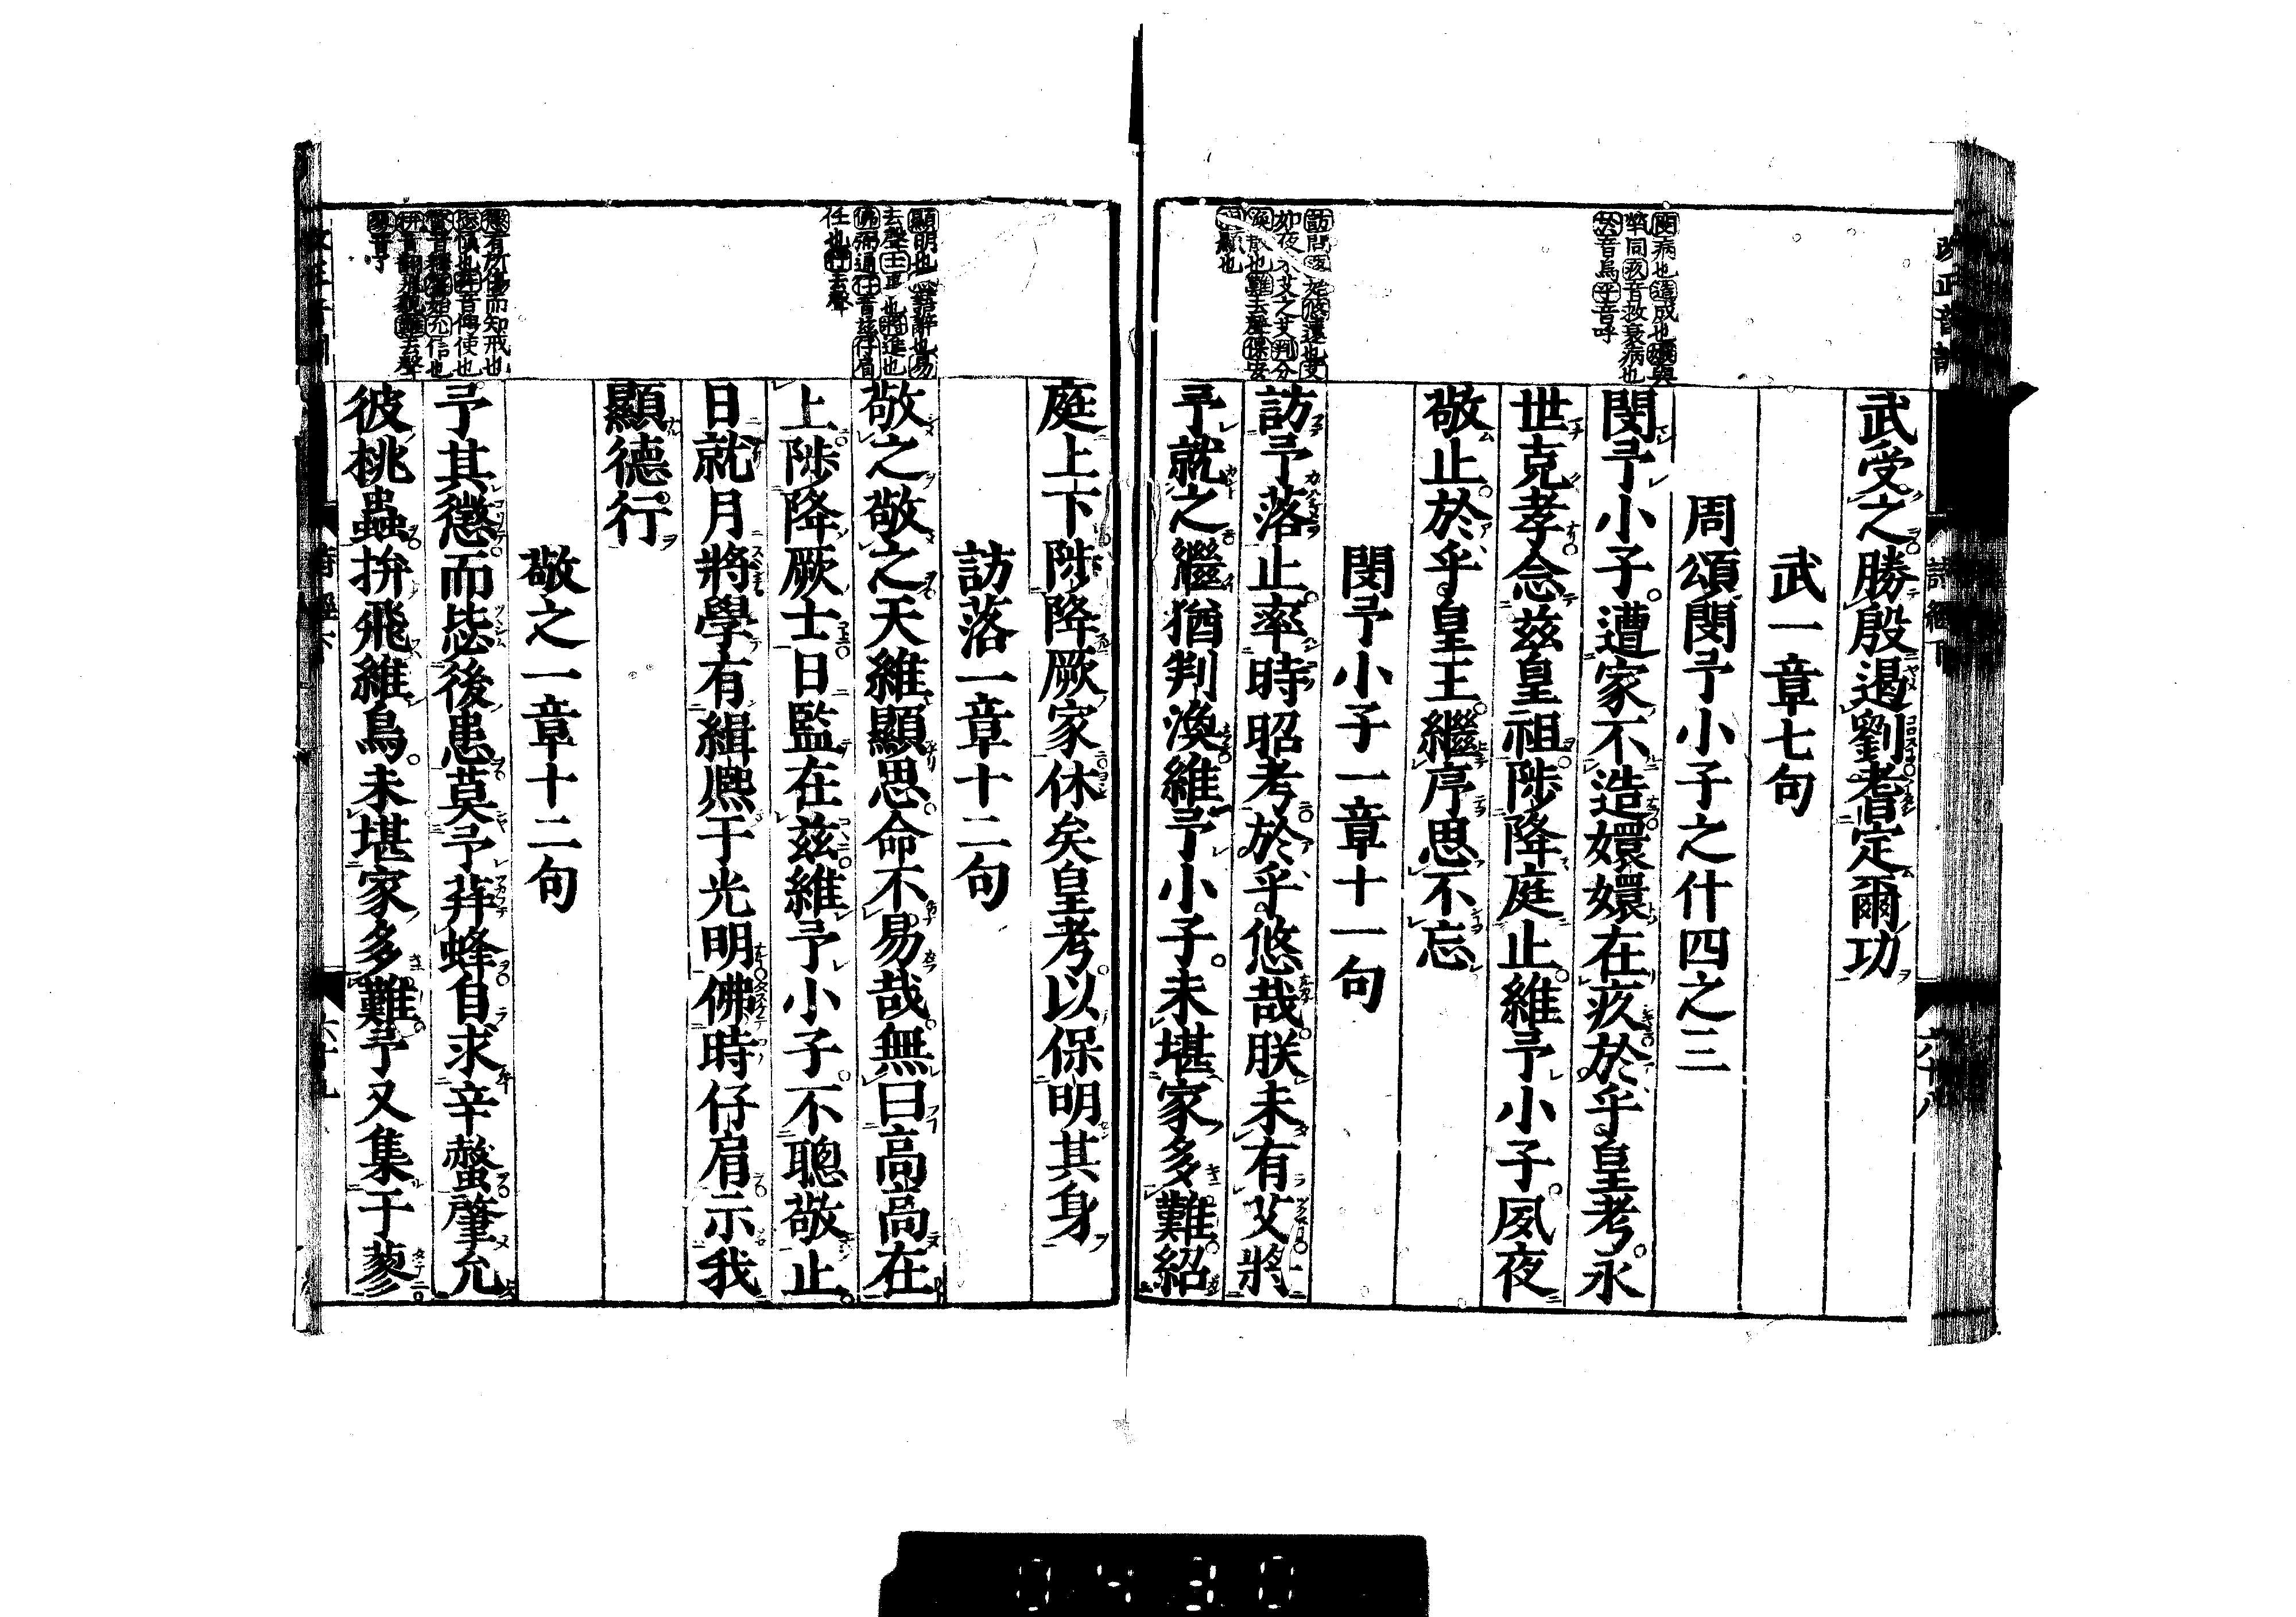 武受之勝殷遏劉耆定爾功
武一章七句
周頌閔予小子之什四之三
閔予小子遭家不造嬛嬛在疚於乎皇考永
世克孝念茲皇祖陟降庭止維予小子夙夜
敬止於乎皇王繼序思不忘
閔予小子一章十一句
訪予落止率時昭考於乎悠哉朕未有艾將
予就之繼猶判渙維予小子未堪家多難紹
庭上下陟降厥家休矣皇考以保明其身
訪落一章十二句
敬之敬之天維顯思命不易哉無曰高高在
上陟降厥士日監在茲維予小子不聰敬止
日就月將學有緝熙于光明佛時仔肩示我
顯德行
敬之一章十二句
予其懲而毖後患莫予荓蜂自求辛螫肇允
彼桃蟲拚飛維鳥未堪家多難予又集于蓼
閔病也造成也嬛與
煢同疚音救哀病也
於音烏乎音呼
顯明也思語辭也易
去聲士事也將進也
佛弼通仔音茲仔肩
任也行去聲
六十八
0430